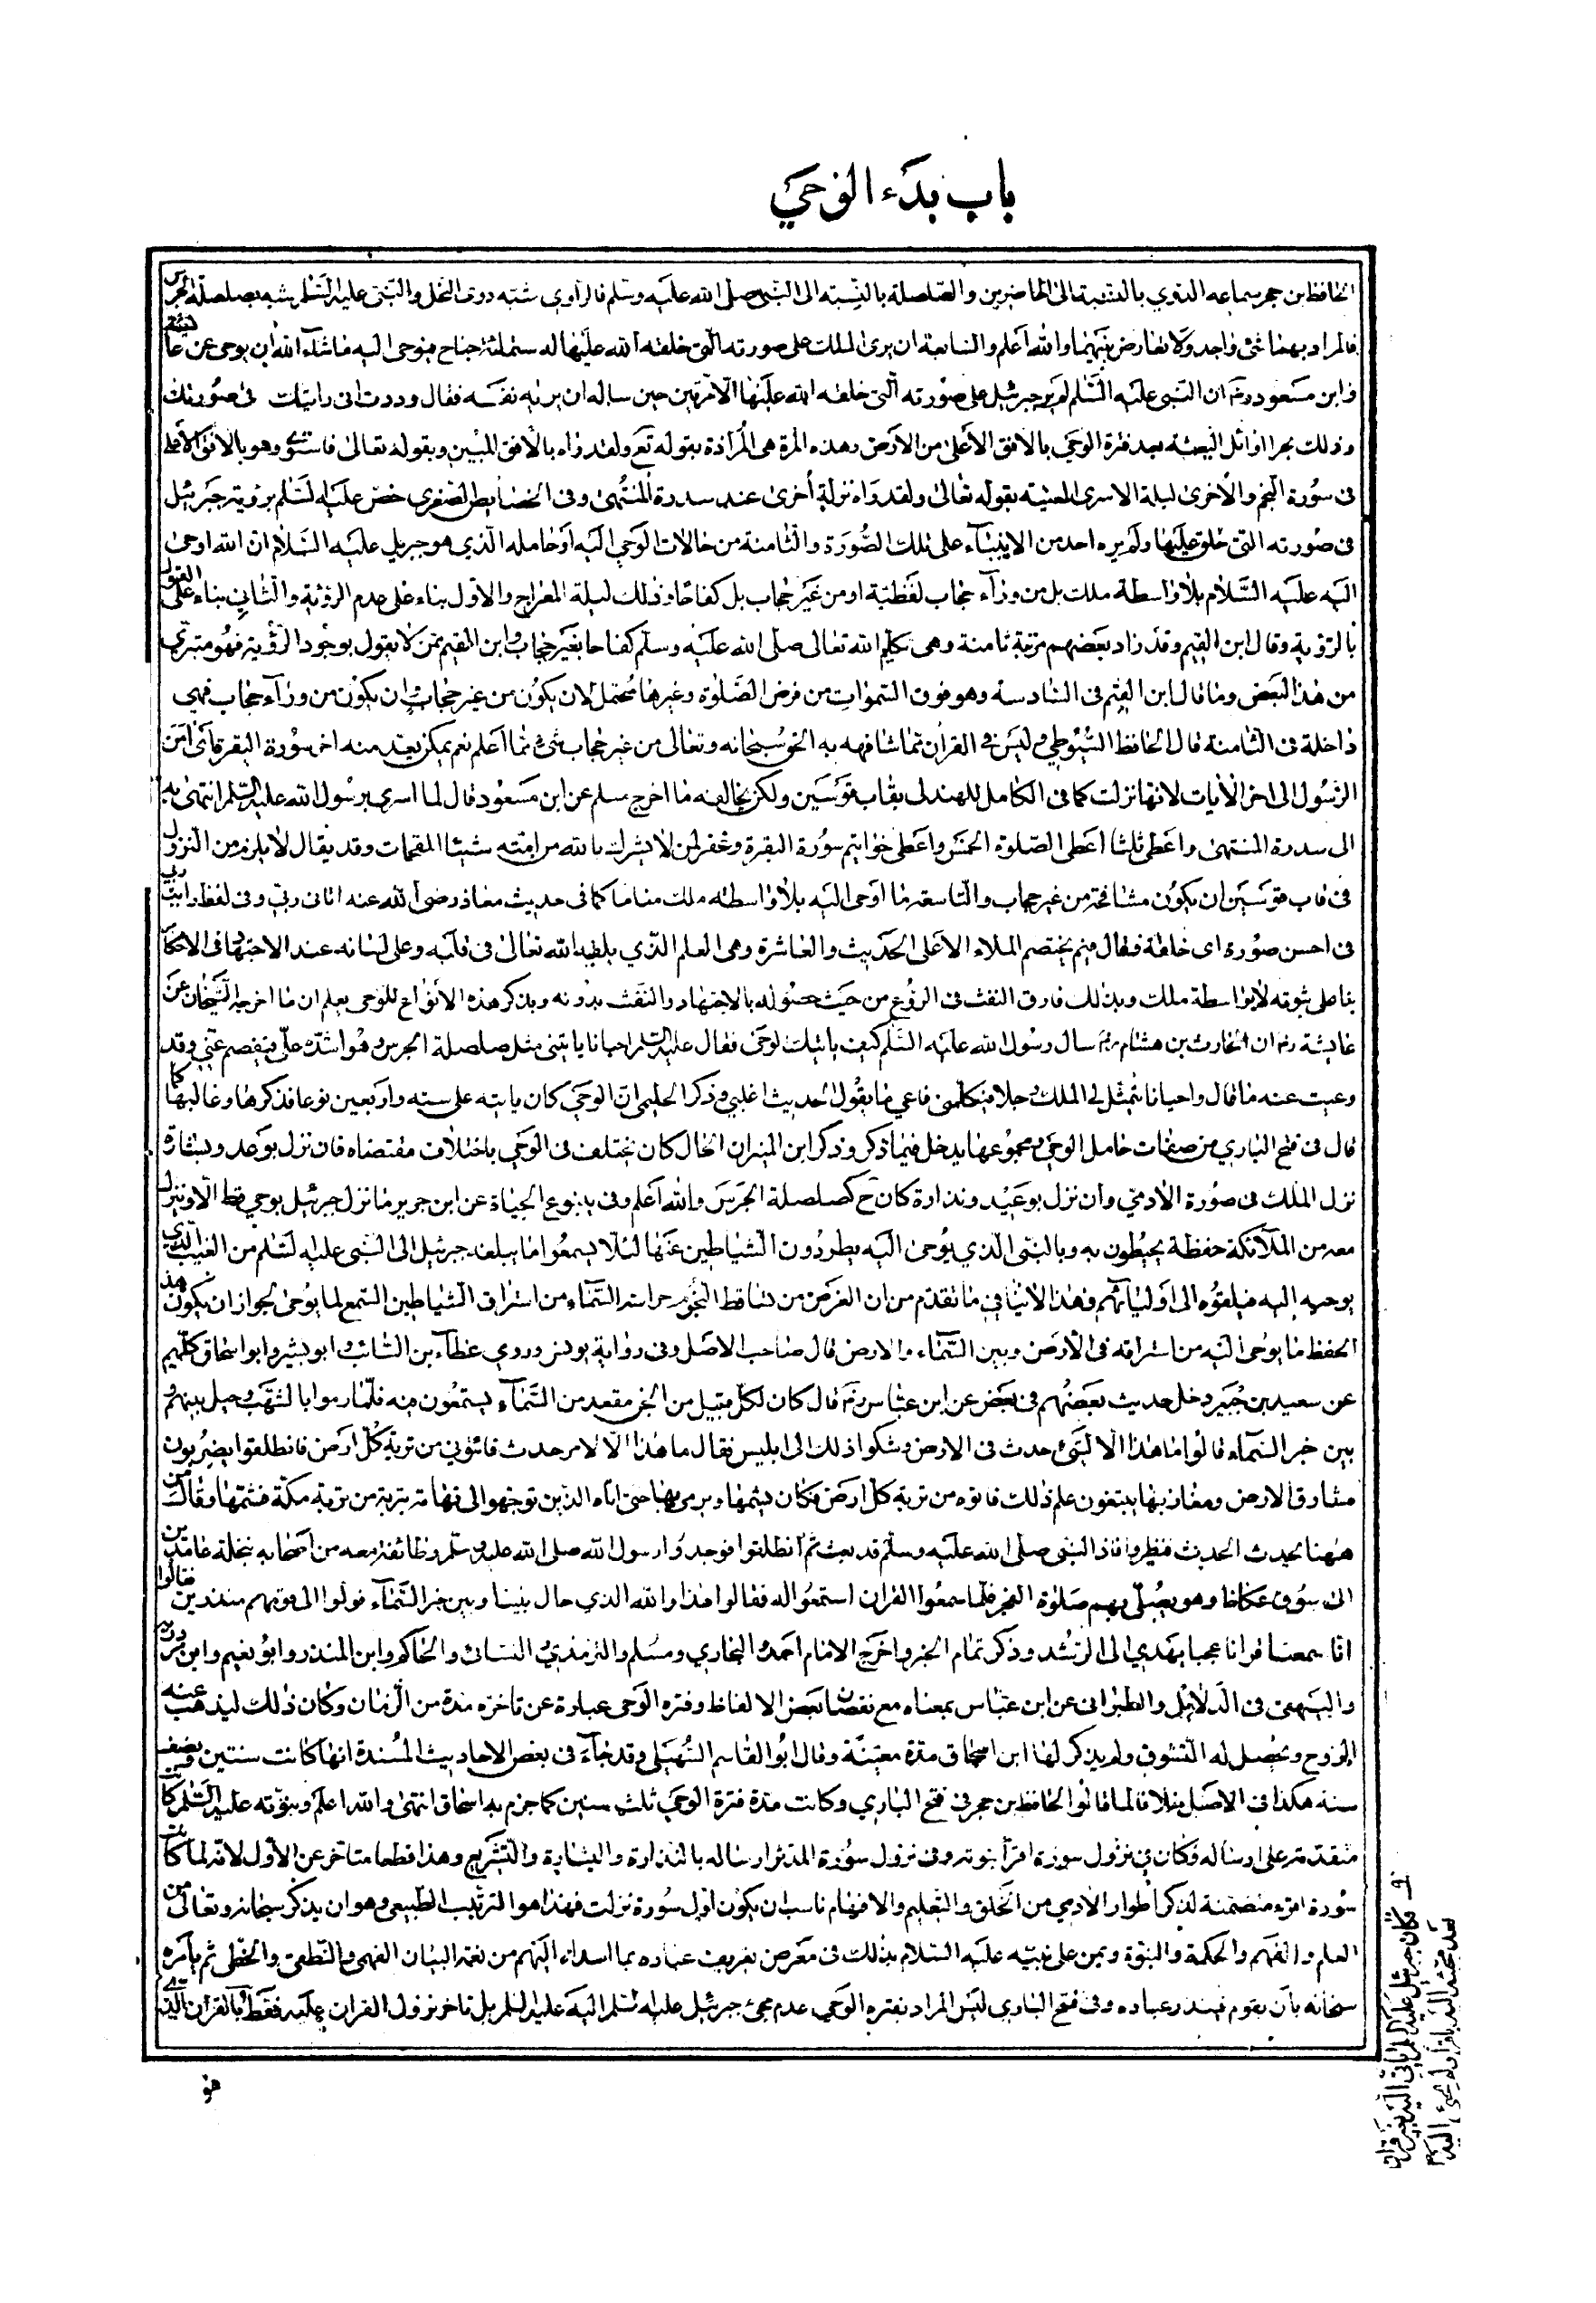 باب بدء الوحي
الحافظ بن حجر سماعه الدوي بالنسبة الى الحاضرين والصلصلة بالنسبة الى النبي صلى الله عليه وسلم فالراوي شبه دوي النحل والنبي عليه السلم شبه بصلصلة الجرس
فالمراد بهما شئ واحد ولا تعارض بينهما والله اعلم والسابعة ان يرى الملك على صورته التي خلقه الله عليها له ستمائة جناح فيوحي اليه ما شاء الله ان يوحي عن عائشة
وابن مسعود رضم ان النبي عليه السلم لم ير جبرئيل على صورته التي خلقه الله عليها الا مرتين حين ساله ان يريه نفسه فقال وددت اني رايتك في صورتك
وذلك بحرا اوائل البعثة بعد فترة الوحي بالافق الاعلى من الارض وهذه المرة هي المرادة بقوله تع ولقد راه بالافق المبين وبقوله تعالى فاستوى وهو بالافق الاعلى
في سورة النجم والاخرى ليلة الاسرى المعنية بقوله تعالى ولقد راه نزلة اخرى عند سدرة المنتهى وفي الخصايص الصغرى خص عليه لسلم برؤية جبرئيل
في صورته التي خلق عليها ولم يره احد من الانبياء على تلك الصورة والثامنة من حالات الوحي اليه او حامله الذي هو جبريل عليه السلام ان الله اوحى
اليه عليه السلام بلا واسطة ملك بل من وراء حجاب لفظية او من غير حجاب بل كفاحا وذلك ليلة المعراج والاول بناء على عدم الرؤية والثاني بناء على القول
بالرؤية وقال ابن القيم وقد زاد بعضهم مرتبة ثامنة وهي تكليم الله تعالى صلى الله عليه وسلم كفاحا بغير حجاب وابن القيم ممن لا يقول بوجود الرؤية فهو متبري
من هذا البعض وما قال ابن القيم في السادسة وهو فوق السموات من فرض الصلوة وغيرها محتمل لان يكون من غير حجاب وان يكون من وراء حجاب فهي
داخلة في الثامنة قال الحافظ السيوطي وليس في القران مما شافهه به الحق سبحانه وتعالى من غير حجاب شئ مما اعلم نعم يمكن يعد منه اخر سورة البقرة اي امن
الرسول الى اخر الايات لانها نزلت كما في الكامل للهندلي بقاب قوسين ولكن يخالفه ما اخرج مسلم عن ابن مسعود قال لما اسري برسول الله عليه السلم انتهى به
الى سدرة المنتهى واعطي ثلثا اعطي الصلوة الخمس واعطي خواتيم سورة البقرة وغفر لمن لا يشرك بالله من امته شيئا المقحمات وقد يقال لا يلزم من النزول
في قاب قوسين ان يكون مشافهة من غير حجاب والتاسعة ما اوحى اليه بلا واسطة ملك مناما كما في حديث معاذ رضي الله عنه اتاني ربي وفي لفظ رايت ربي
في احسن صورة اي خلقة فقال فيم يختصم الملاء الاعلى الحديث والعاشرة وهي العلم الذي يلقيه الله تعالى في قلبه وعلى لسانه عند الاجتهاد في الاحكام
بناء على ثبوته لا بواسطة ملك وبذلك فارق النفث في الروع من حيث حصوله بالاجتهاد والنفث بدونه وبذكر هذه الانواع للوحي يعلم ان ما اخرجه الشيخان عن
عايشة رضم ان الحارث بن هشام رضم سال رسول الله عليه السلم كيف ياتيك الوحي فقال عليه السلم احيانا ياتيني مثل صلصلة الجرس وهو اشده علي فيفصم عني وقد
وعيت عنه ما قال واحيانا يتمثل لي الملك رجلا فيكلمني فاعي ما يقول الحديث اغلبي وذكر الحليمي ان الوحي كان ياتيه على سته واربعين نوعا فذكرها وغالبها كما
قال في فتح الباري من صفات حامل الوحي ومجموعها يدخل فيما ذكر وذكر ابن المنير ان الحال كان يختلف في الوحي باختلاف مقتضاه فان نزل بوعد وبشارة
نزل الملك في صورة الادمي وان نزل بوعيد ونذارة كان ح كصلصلة الجرس والله اعلم وفي ينبوع الحياة عن ابن جرير ما نزل جبرئيل بوحي قط الا ونزل
معه من الملائكة حفظة يحيطون به وبالنبي الذي يوحى اليه يطردون الشياطين عنها لئلا يسمعوا ما يبلغه جبرئيل الى النبي عليه لسلم من الغيب الذي
يوحيه اليه فيلقوه الى اوليائهم وهذا لا ينافي ما تقدم من ان الغرض من تساقط النجوم حراسة السماء من استراق الشياطين السمع لما يوحى لجواز ان يكون هذا
الحفظ ما يوحى اليه من استراقه في الارض وبين السماء والارض قال صاحب الاصل وفي رواية يونس وروي عطاء بن السائب وابو بشر وابو اسحاق كلهم
عن سعيد بن جبير دخل حديث بعضهم في بعض عن ابن عباس رضم قال كان لكل قبيل من الجن مقعد من السماء يستمعون منه فلما رموا بالشهب وحيل بينهم و
بين خبر السماء قالوا ما هذا الا لشئ حدث في الارض وشكوا ذلك الى ابليس فقال ما هذا الا لامر حدث فائتوني من تربة كل ارض فانطلقوا يضربون
مشارق الارض ومغاربها يبتغون علم ذلك فاتوه من تربة كل ارض فكان يشمها ويرمي بها حتى اتاه الذين توجهوا الى تهامة بتربة من تربة مكة فشمها وقال من
ههنا يحدث الحديث فنظروا فاذا النبي صلى الله عليه وسلم قد بعث ثم انطلقوا فوجدوا رسول الله صلى الله عليه وسلم وطائفة معه من اصحابه بنخلة عامدين
الى سوق عكاظ وهو يصلي بهم صلوة الفجر فلما سمعوا القران استمعوا له فقالوا هذا والله الذي حال بيننا وبين خبر السماء فولوا الى قومهم منذرين فقالوا
انا سمعنا قرانا عجبا يهدي الى الرشد وذكر تمام الخبر واخرج الامام احمد والبخاري ومسلم والترمذي والنسائ والحاكم وابن المنذر وابو نعيم وابن مردويه
والبيهقي في الدلائل والطبراني عن ابن عباس بمعناه مع نقصان بعض الالفاظ وفتره الوحي عبارة عن تاخره مدة من الزمان وكان ذلك ليذهب عنه
الروع ويحصل له التشوق ولم يذكر لها ابن اسحاق مدة معينة وقال ابو القاسم السهيلي وقد جاء في بعض الاحاديث المسندة انها كانت سنتين ونصف
سنة هكذا في الاصل خلافا لما قاله الحافظ بن حجر في فتح الباري وكانت مدة فترة الوحي ثلث سنين كما جزم به اسحاق انتهى والله اعلم ونبوته عليه السلم كانت
متقدمة على ارساله فكان في نزول سورة اقرأ نبوته وفي نزول سورة المدثر ارساله بالنذارة والبشارة والتشريع وهذا قطعا متاخر عن الاول لانه لما كانت
سورة اقرء متضمنة لذكر اطوار الادمي من الخلق والتعليم والافهام ناسب ان يكون اول سورة نزلت فهذا هو الترتيب الطبيعي وهو ان يذكر سبحانه وتعالى من
العلم والفهم والحكمة والنبوة ويمن على نبيه عليه السلام بذلك في معرض تعريف عباده بما اسداه اليهم من نعمة البيان الفهمي والنطقي والخطي ثم يامره
سبحانه بان يقوم فينذر عباده وفي فتح الباري ليس المراد بفتره الوحي عدم مجئ جبرئيل عليه لسلم اليه عليه السلم بل تاخر نزول القران عليه فقط بالقران الذي
هو
فكان جبرئيل عليه السلم ياتي اليه بغير قران
بعد مجيئه اليه باقرا ولم يجئ اليه